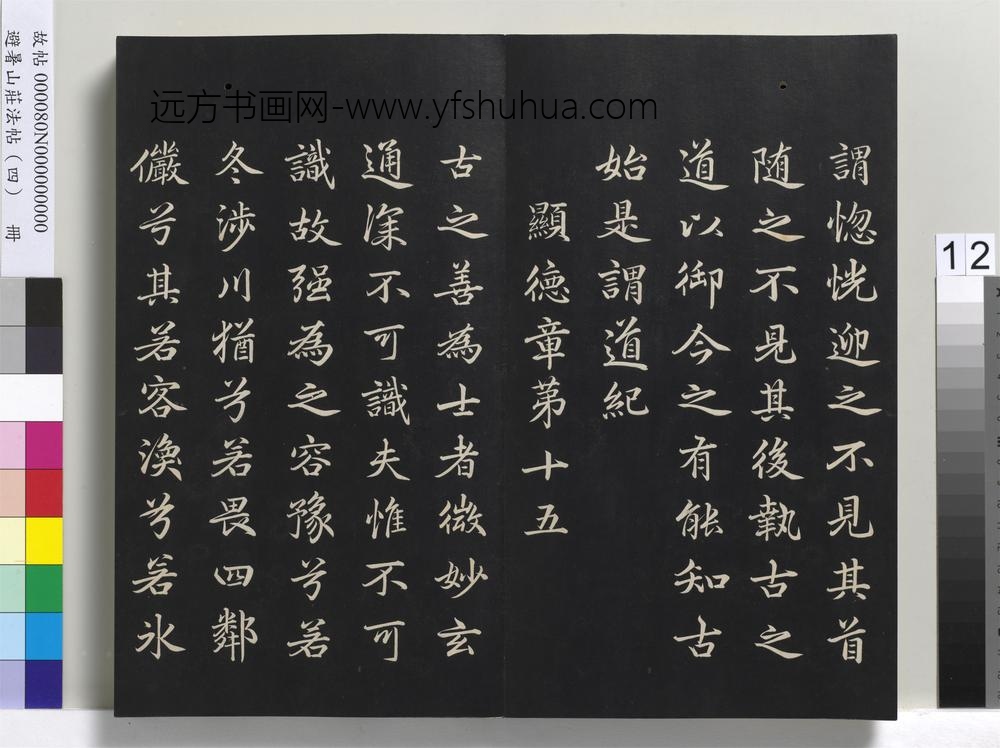 远方书画网-www.yfshuhua.com
謂惚恍迎之不見其首
随之不見其後執古之
道以御今之有能知古
始是謂道紀
顯德章第十五
古之善為士者微妙玄
通深不可識夫惟不可
識故强為之容豫兮若
冬涉川猶兮若畏四鄰
儼兮其若客渙兮若氷
故帖 000080N000000000
避暑山莊法帖（四） 冊
12